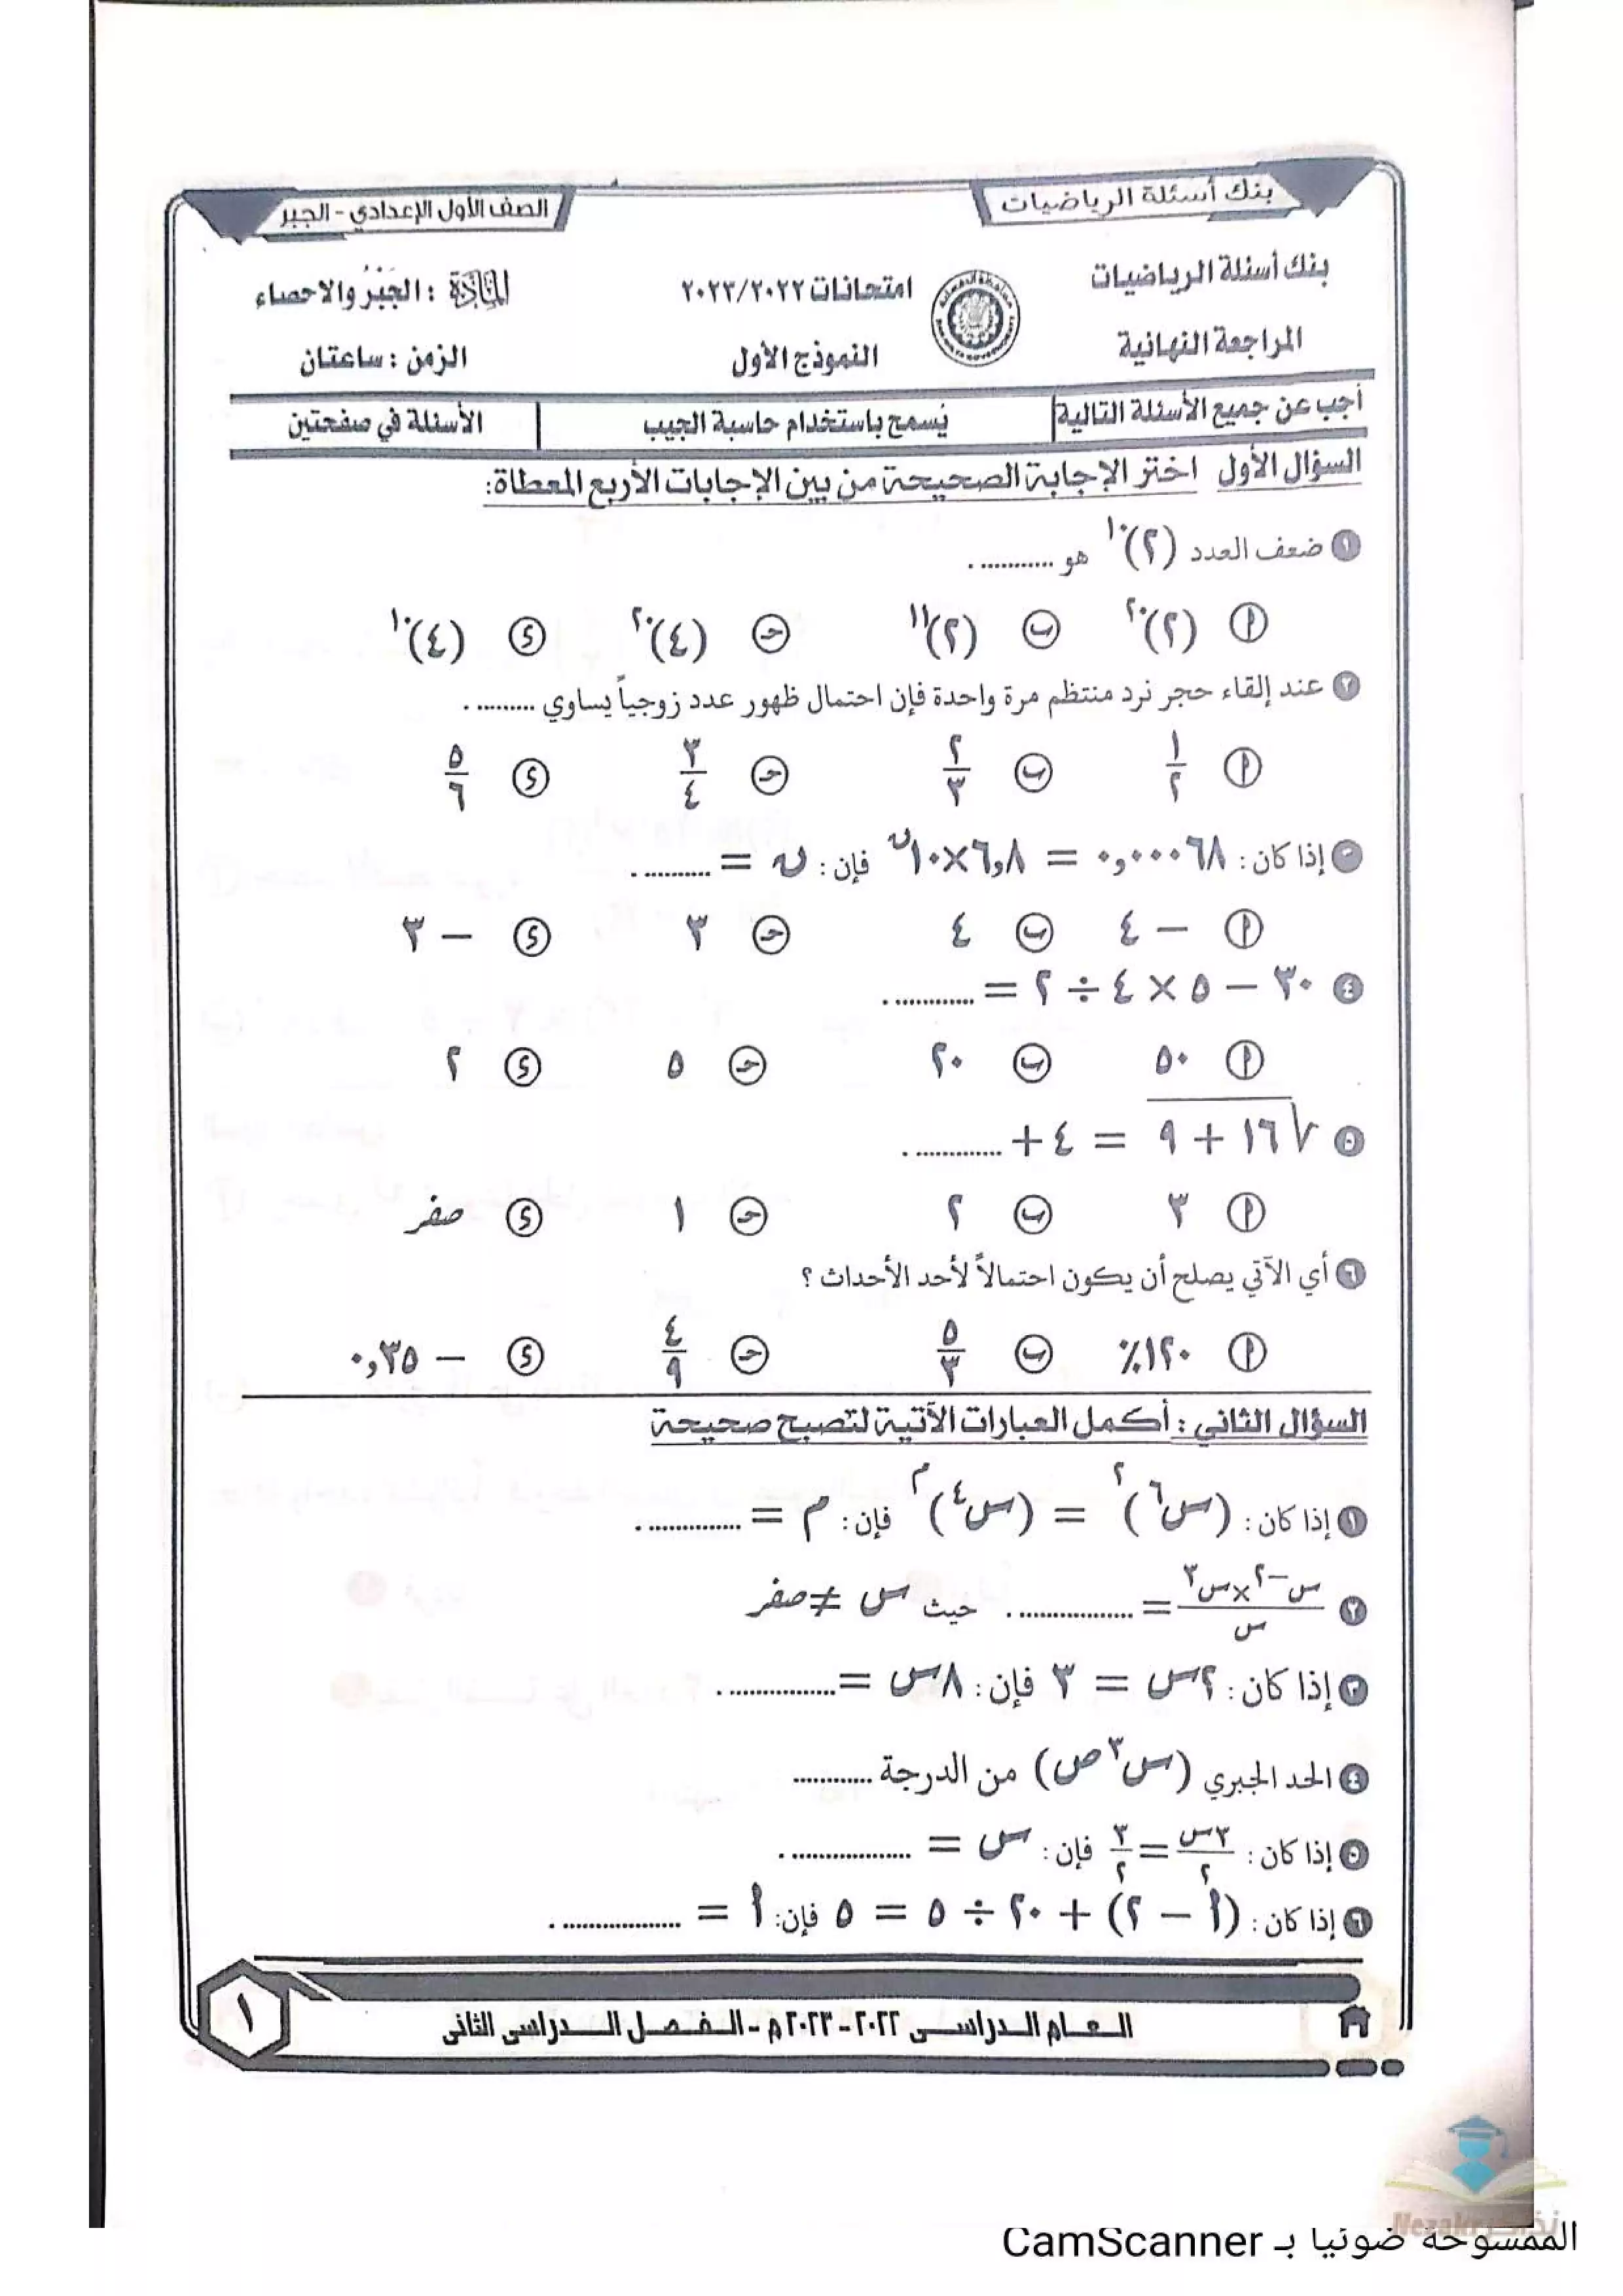 بنك أسئلة الرياضيات
الصف الأول الإعدادي - الجبر
بنك أسئلة الرياضيات
امتحانات ٢٠٢٣/٢٠٢٢
المَادَّة : الجَبْرُ والاحصاء
المراجعة النهائية
النموذج الأول
الزمن : ساعتان
أجب عن جميع الأسئلة التالية
يُسمح باستخدام حاسبة الجيب
الأسئلة في صفحتين
السؤال الأول اختر الإجابة الصحيحة من بين الإجابات الأربع المعطاة:
١ ضعف العدد (٢)^١٠ هو ............
أ (٢)^٢٠ ب (٢)^١١ حـ (٤)^٢٠ د (٤)^١٠
٢ عند إلقاء حجر نرد منتظم مرة واحدة فإن احتمال ظهور عدد زوجياً يساوي ..........
أ ١/٢ ب ٢/٣ حـ ٣/٤ د ٥/٦
إذا كان : ٠,٠٠٠٦٨ = ٦,٨×١٠^ن فإن : ن = ...........
أ - ٤ ب ٤ حـ ٣ د - ٣
٤ ٣٠ - ٥ × ٤ ÷ ٢ = .............
أ ٥٠ ب ٢٠ حـ ٥ د ٢
٥ √(١٦ + ٩) = ٤ + ..............
أ ٣ ب ٢ حـ ١ د صفر
٦ أي الآتي يصلح أن يكون احتمالاً لأحد الأحداث ؟
أ ١٢٠٪ ب ٥/٣ حـ ٤/٩ د - ٠,٣٥
السؤال الثاني : أكمل العبارات الآتية لتصبح صحيحة
١ إذا كان : (س^٦)^٢ = (س^٤)^م فإن : م = ...............
٢ (س^-٢ × س^٣)/س = .................. حيث س ≠ صفر
٣ إذا كان : ٢س = ٣ فإن : ٨س = ................
٤ الحد الجبري (س^٣ ص) من الدرجة ............
٥ إذا كان : ٣س/٢ = ٣/٢ فإن : س = ...................
٦ إذا كان : (أ - ٢) + ٢٠ ÷ ٥ = ٥ فإن: أ = ...................
العام الدراسى ٢٠٢٢ - ٢٠٢٣ م - الفصل الدراسى الثانى
١
نذاكر Nezakr
الممسوحة ضوئيا بـ CamScanner